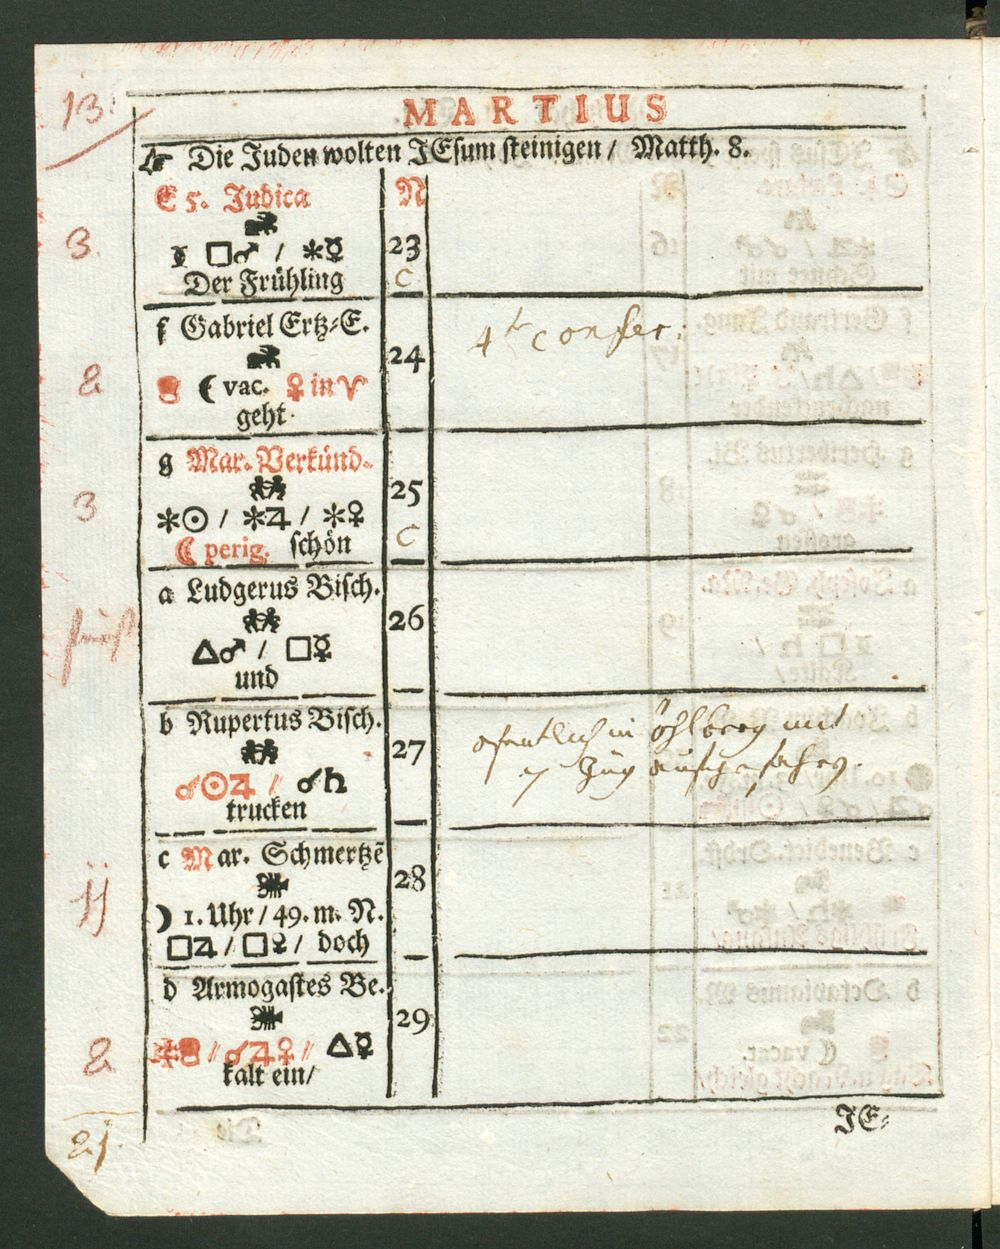 13.
MARTIUS
☞ Die Juden wolten JEsum steinigen / Matth. 8.
E 5. Judica N
3. □♂ / ⚹☿ 23
Der Frühling C
f Gabriel Ertz-E. 4t confer:
24
2 ☾ vac. ♀ in ♈
geht
g Mar. Verkünd.
3 25
⚹☉ / ⚹♃ / ⚹♀
☾ perig. schön C
a Ludgerus Bisch.
26
△♂ / □☿
und
b Rupertus Bisch. ofentlich in öhlberg mit
27 7 Züg aufgefahrn.
☌☉♃ // ☌♄
trucken
c Mar. Schmertzē
28
☽ 1. Uhr / 49. m. N.
□♃ / □♀ / doch
d Armogastes Be.
29
2 // ☌♃♀ // △☿
kalt ein/
JE-
21.